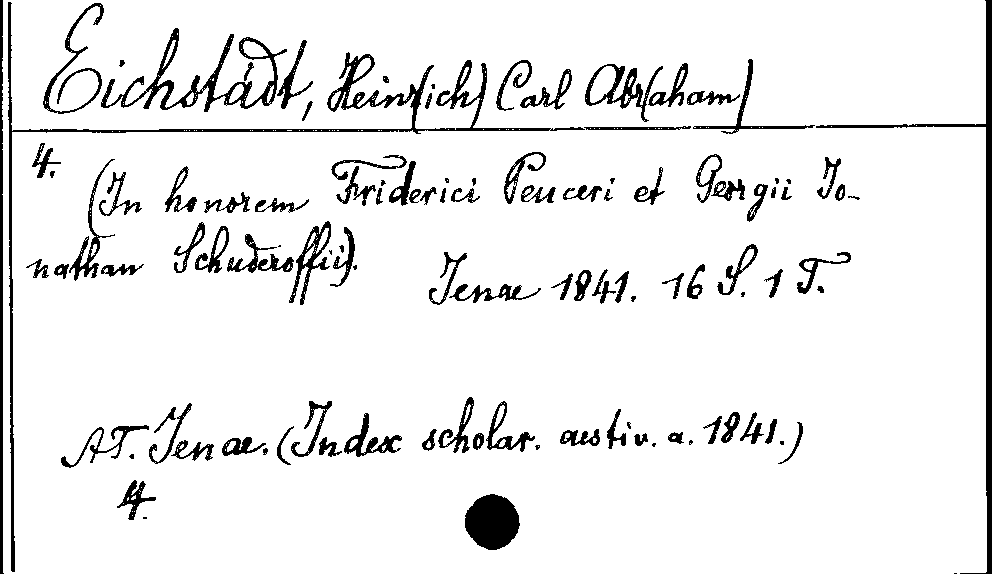 Eichstädt, Heinr(ich) Carl Abr(aham)
4.
(In honorem Friderici Peuceri et Georgii Jo-
nathan Schuderoffii).
Jenae 1841. 16 S. 1 T.
AT. Jenae. (Index scholar. aestiv. a. 1841.)
4.